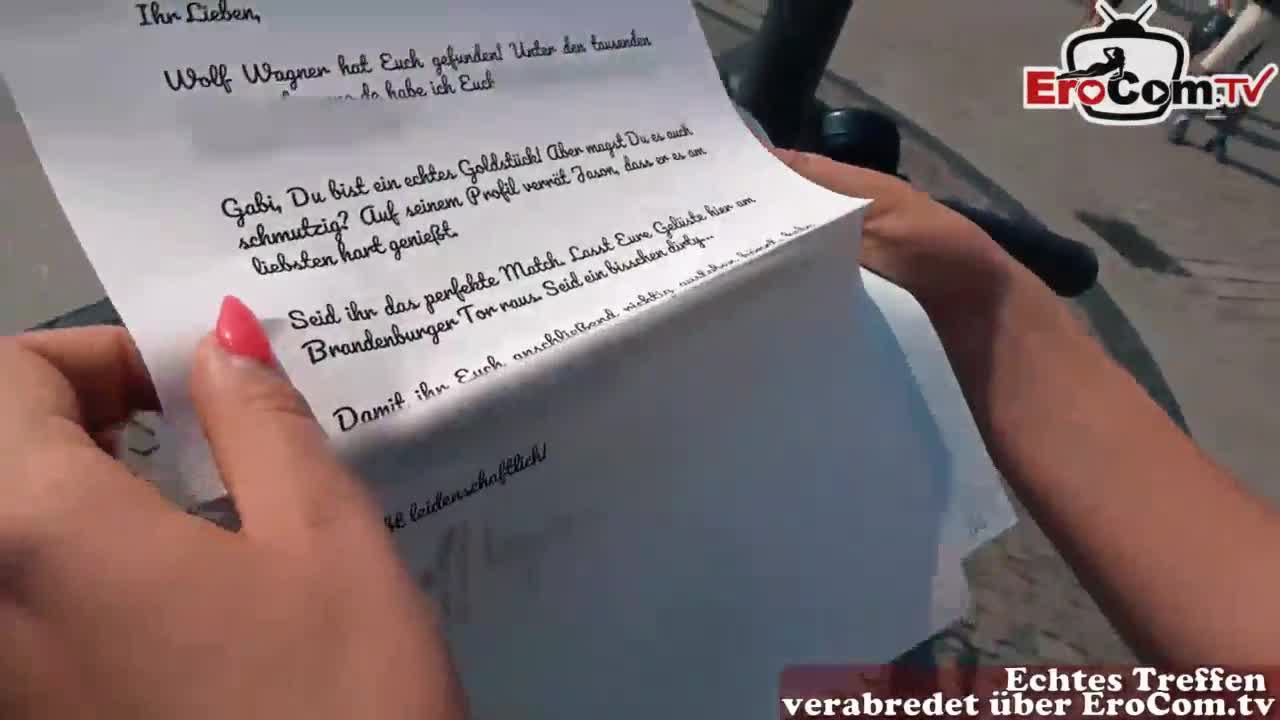 Ihr Lieben,
Wolf Wagner hat Euch gefunden! Unter den tausenden
da habe ich Euch
Gabi, Du bist ein echtes Goldstück! Aber magst Du es auch
schmutzig? Auf seinem Profil verrät Jason, dass er es am
liebsten hart genießt.
Seid ihr das perfekte Match. Lasst Eure Gelüste hier am
Brandenburger Tor raus. Seid ein bisschen dirty...
Damit ihr Euch anschließend richtig
leidenschaftlich!
EroCom.TV
Echtes Treffen
verabredet über EroCom.tv